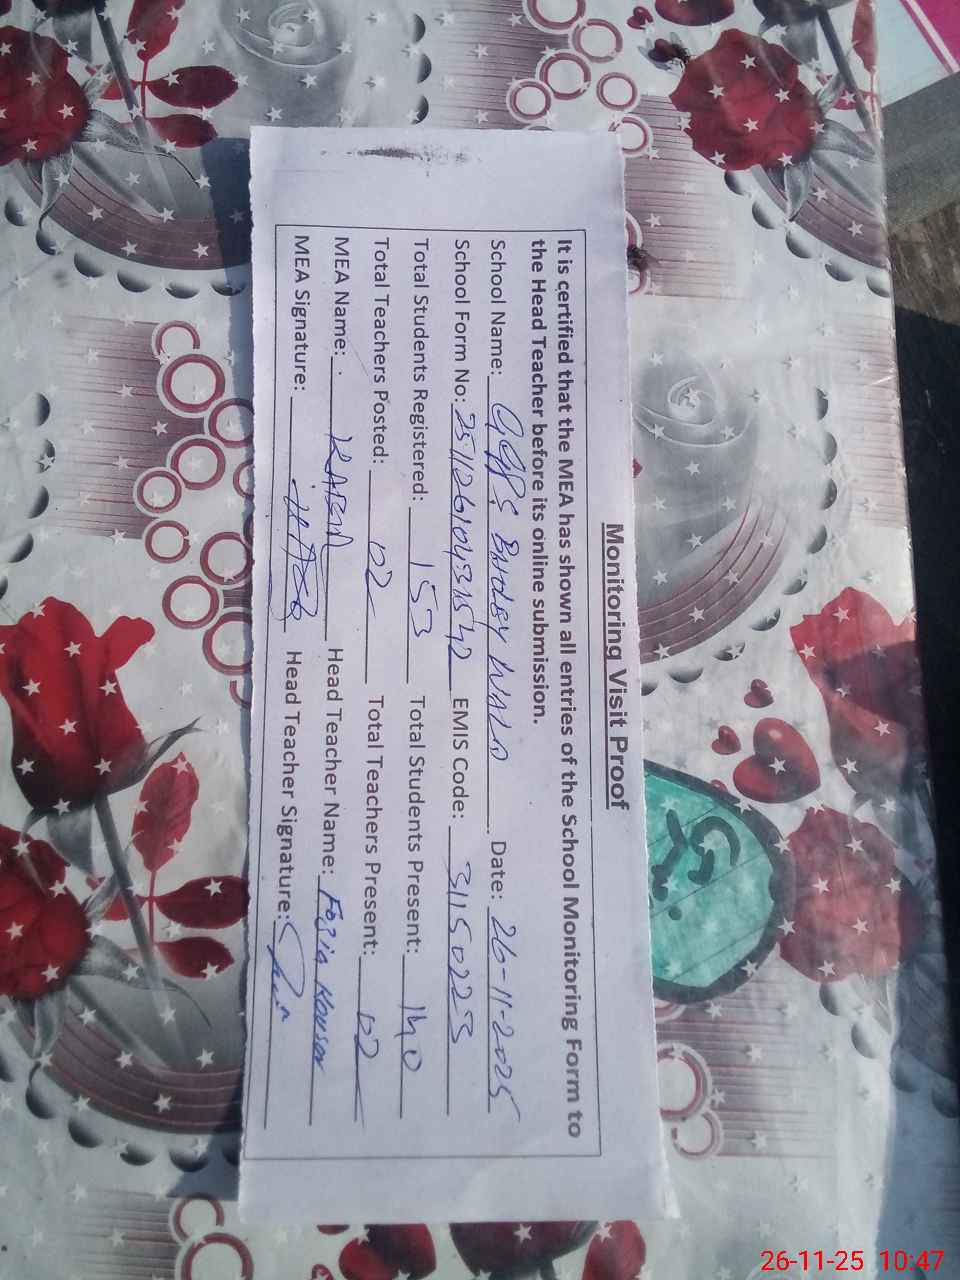 Monitoring Visit Proof
It is certified that the MEA has shown all entries of the School Monitoring Form to
the Head Teacher before its online submission.
School Name: GGPS WALA Date: 26-11-2025
School Form No: EMIS Code: 31150223
Total Students Registered: 153 Total Students Present: 140
Total Teachers Posted: 02 Total Teachers Present: 02
MEA Name: Head Teacher Name: Fozia Kousar
MEA Signature: Head Teacher Signature:
26-11-25 10:47